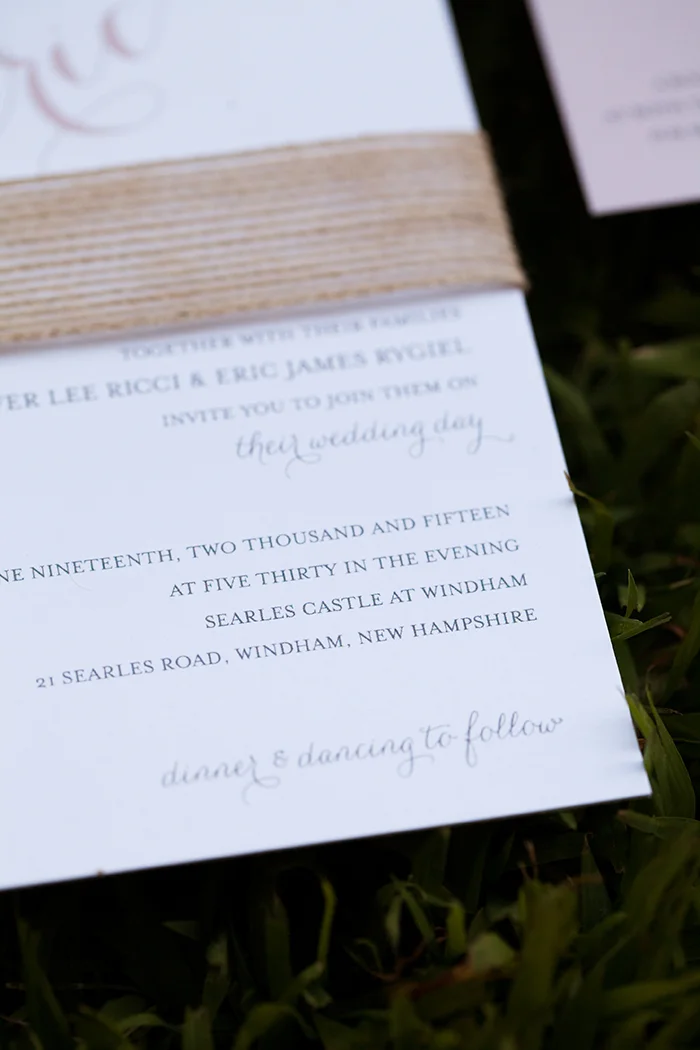 ric
TOGETHER WITH THEIR FAMILIES
VER LEE RICCI & ERIC JAMES RYGIEL
INVITE YOU TO JOIN THEM ON
their wedding day
NE NINETEENTH, TWO THOUSAND AND FIFTEEN
AT FIVE THIRTY IN THE EVENING
SEARLES CASTLE AT WINDHAM
21 SEARLES ROAD, WINDHAM, NEW HAMPSHIRE
dinner & dancing to follow